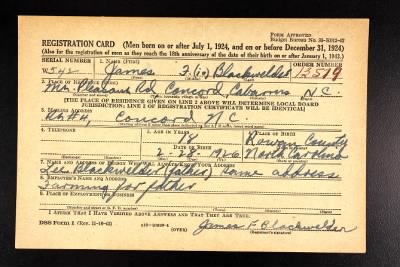 FORM APPROVED
Budget Bureau No. 33-R012-42
REGISTRATION CARD (Men born on or after July 1, 1924, and on or before December 31, 1924)
(Also for the registration of men as they reach the 18th anniversary of the date of their birth on or after January 1, 1943.)
SERIAL NUMBER 1. NAME (Print) ORDER NUMBER
W 542 James F. (io) Blackwelder 12519
Mt. Pleasant Rd Concord Cabarrus N.C.
[THE PLACE OF RESIDENCE GIVEN ON LINE 2 ABOVE WILL DETERMINE LOCAL BOARD
JURISDICTION; LINE 2 OF REGISTRATION CERTIFICATE WILL BE IDENTICAL]
3. MAILING ADDRESS
Rt #4, Concord N.C.
4. TELEPHONE 5. AGE IN YEARS 6. PLACE OF BIRTH
18 Rowan County
DATE OF BIRTH
2 28 1926 North Carolina
7. NAME AND ADDRESS OF PERSON WHO WILL ALWAYS KNOW YOUR ADDRESS
Lee Blackwelder (father) same address
8. EMPLOYER'S NAME AND ADDRESS
Farming for father
9. PLACE OF EMPLOYMENT OR BUSINESS
I AFFIRM THAT I HAVE VERIFIED ABOVE ANSWERS AND THAT THEY ARE TRUE.
DSS Form 1 (Rev. 11-16-42) (OVER) James F. Blackwelder
(Registrant's signature)